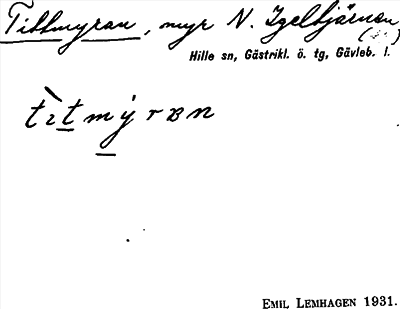 Tittmyran, myr N. Igeltjärnen
Hille sn, Gästrikl. ö. tg, Gävleb. l.
EMIL LEMHAGEN 1931.